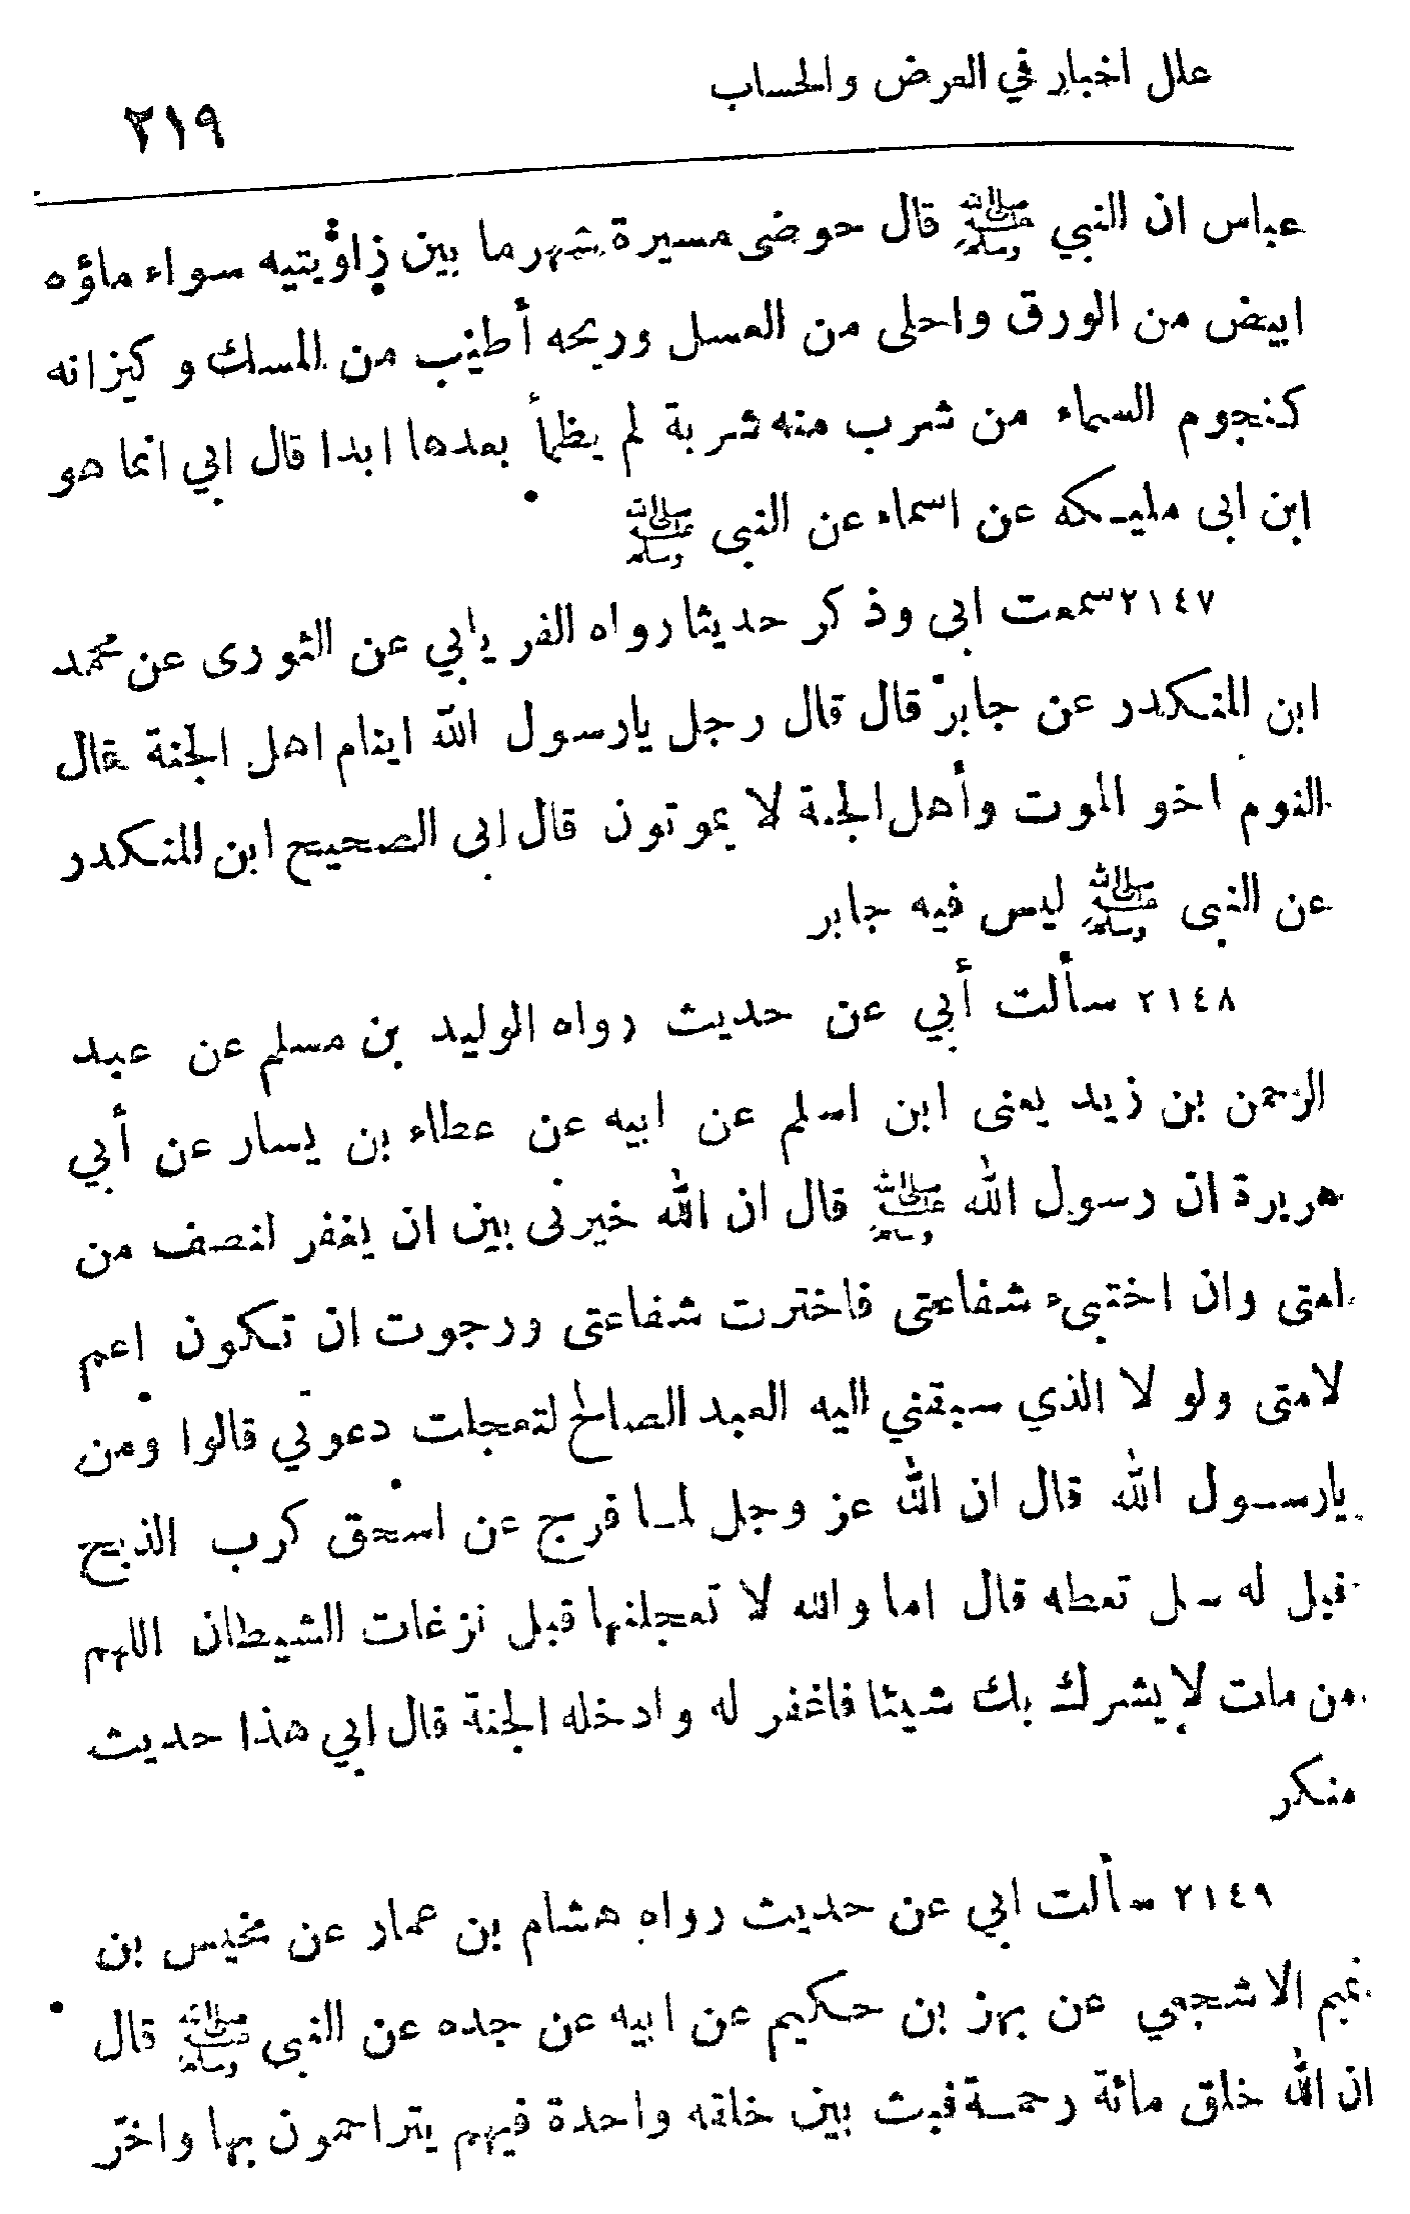 علل اخبار في العرض والحساب
٢١٩
عباس ان النبي ﷺ قال حوضى مسيرة شهر ما بين زاويتيه سواء ماؤه
ابيض من الورق واحلى من العسل وريحه أطيب من المسك و كيزانه
كنجوم السماء من شرب منه شربة لم يظمأ بعدها ابدا قال ابي انما هو
ابن ابى مليكه عن اسماء عن النبى ﷺ
٢١٤٧ سمعت ابي وذكر حديثا رواه الفريابي عن الثورى عن محمد
ابن المنكدر عن جابر قال قال رجل يارسول الله اينام اهل الجنة قال
النوم اخو الموت وأهل الجنة لا يموتون قال ابى الصحيح ابن المنكدر
عن النبى ﷺ ليس فيه جابر
٢١٤٨ سألت أبي عن حديث رواه الوليد بن مسلم عن عبد
الرحمن بن زيد يعنى ابن اسلم عن ابيه عن عطاء بن يسار عن أبي
هريرة ان رسول الله ﷺ قال ان الله خيرنى بين ان يغفر لنصف من
امتى وان اختبىء شفاعتى فاخترت شفاعتى ورجوت ان تكون اعم
لامتى ولو لا الذي سبقني اليه العبد الصالح لتعجلت دعوتي قالوا ومن
يارسول الله قال ان الله عز وجل لما فرج عن اسحق كرب الذبح
قيل له سل تعطه قال اما والله لا تعجلنها قبل نزغات الشيطان اللهم
من مات لا يشرك بك شيئا فاغفر له وادخله الجنة قال ابي هذا حديث
منكر
٢١٤٩ سألت ابي عن حديث رواه هشام بن عمار عن مخيس بن
تميم الاشجعي عن بهز بن حكيم عن ابيه عن جده عن النبي ﷺ قال
ان الله خلق مائة رحمة فبث بين خلقه واحدة فيهم يتراحمون بها واخر